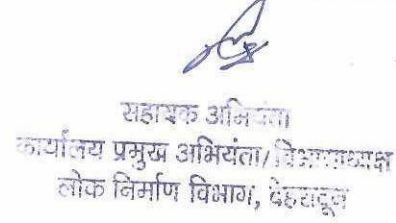 सहायक अभियंता
कार्यालय प्रमुख अभियंता/विभागाध्यक्ष
लोक निर्माण विभाग, देहरादून